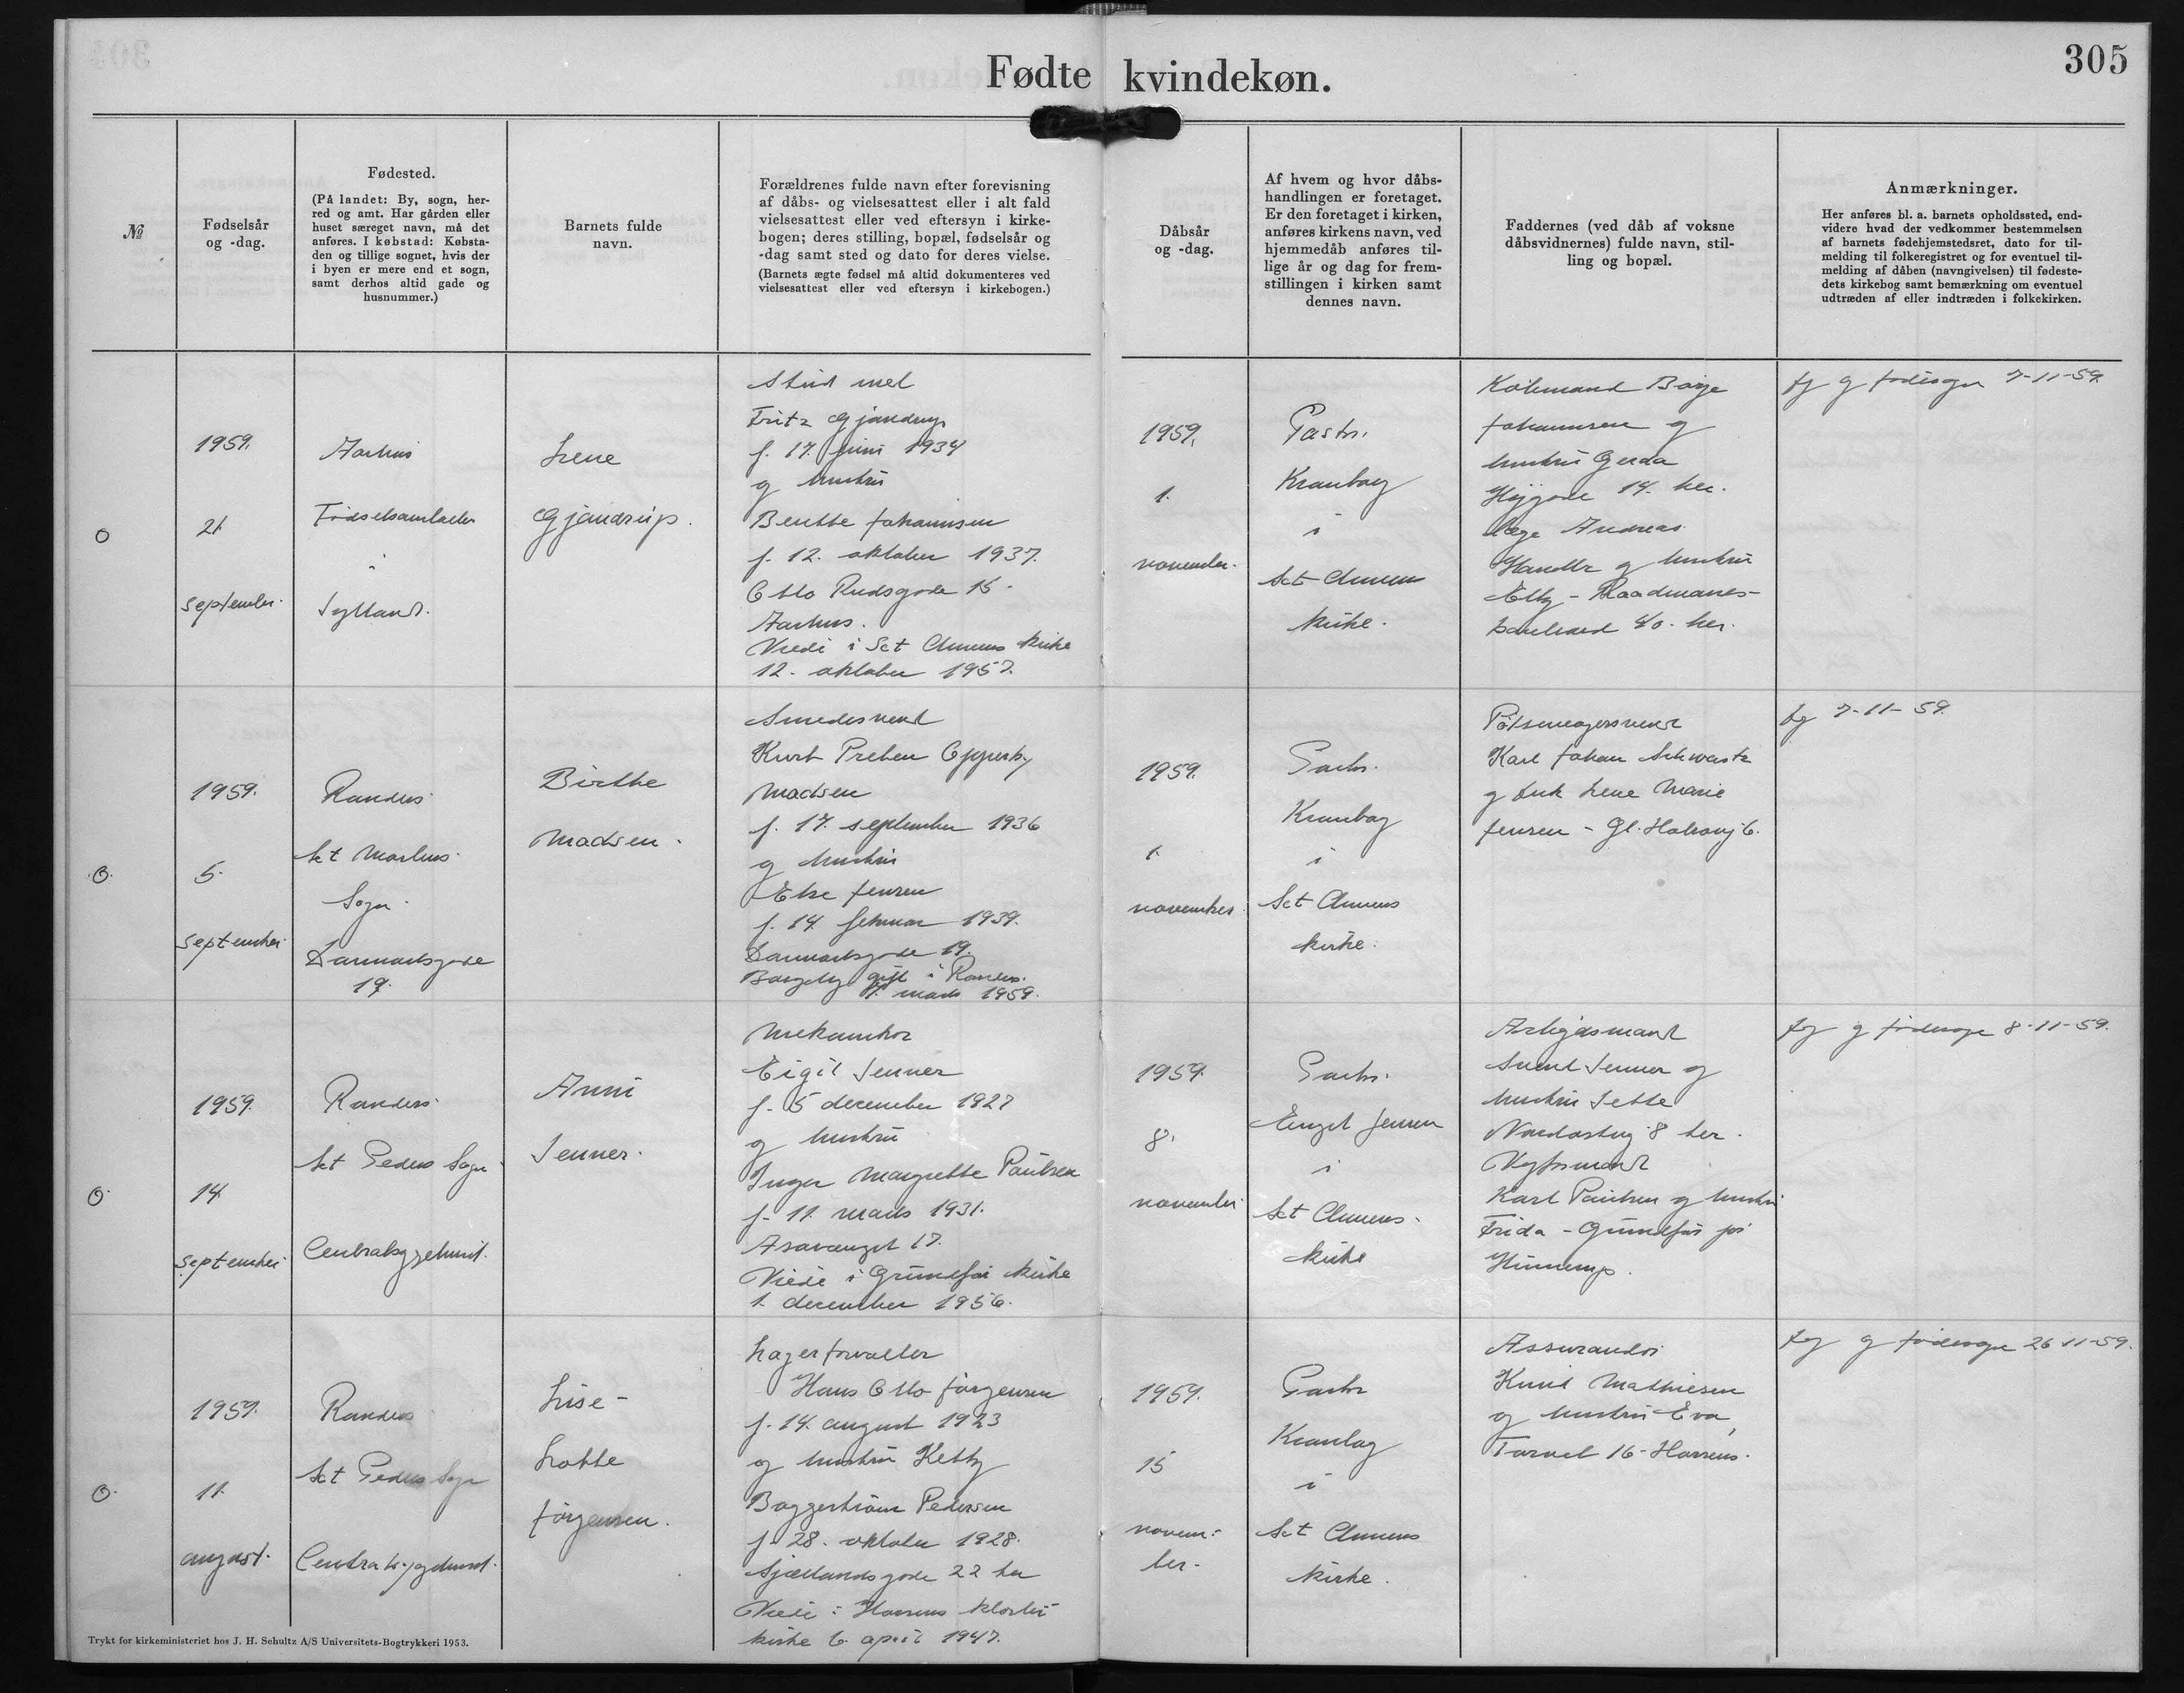 305
Fødte kvindekøn.
№
Fødselsår
og -dag.
Fødested.
(På landet: By, sogn, her-
red og amt. Har gården eller
huset særeget navn, må det
anføres. I købstad: Købsta-
den og tillige sognet, hvis der
i byen er mere end et sogn,
samt derhos altid gade og
husnummer.)
Barnets fulde
navn.
Forældrenes fulde navn efter forevisning
af dåbs- og vielsesattest eller i alt fald
vielsesattest eller ved eftersyn i kirke-
bogen; deres stilling, bopæl, fødselsår og
-dag samt sted og dato for deres vielse.
(Barnets ægte fødsel må altid dokumenteres ved
vielsesattest eller ved eftersyn i kirkebogen.)
Dåbsår
og -dag.
Af hvem og hvor dåbs-
handlingen er foretaget.
Er den foretaget i kirken,
anføres kirkens navn, ved
hjemmedåb anføres til-
lige år og dag for frem-
stillingen i kirken samt
dennes navn.
Faddernes (ved dåb af voksne
dåbsvidnernes) fulde navn, stil-
ling og bopæl.
Anmærkninger.
Her anføres bl. a. barnets opholdssted, end-
videre hvad der vedkommer bestemmelsen
af barnets fødehjemstedsret, dato for til-
melding til folkeregistret og for eventuel til-
melding af dåben (navngivelsen) til fødeste-
dets kirkebog samt bemærkning om eventuel
udtræden af eller indtræden i folkekirken.
0
1959.
21
september.
Aarhus
Fødselsanstalten
i
Jylland.
Lene
Gjandrup.
Stud med
Fritz Gjandrup
f. 17. juni 1934
og hustru
Benthe Johannsen
f. 12. oktober 1937.
Otto Rudsgade 15.
Aarhus.
Viede i Sct Clemens kirke
12. oktober 1957.
1959.
1.
november.
Pastor
i
Sct Clemens
kirke.
Købmand Børge
Johannsen og
hustru Gerda
14. her.
læge Andreas
og hustru
Elly - Raadmands-
boulevard 40. her.
og fødesogn 7-11-59.
0.
1959.
5.
september
Randers
Sct Mortens
Sogn.
Danmarksgade
19.
Birthe
Madsen.
Smedesvend
Kurt Preben
Madsen
f. 17. september 1936
og hustru
Else Jensen
f. 14. februar 1939.
Danmarksgade 19.
Borgerlig gift i Randers.
7. marts 1959.
1959.
1.
november.
Pastor
i
Sct Clemens
kirke.
Pølsemagersvend
Karl Johan Schwartz
og frk Lene Marie
Jensen - Gl. Hobrovej 6.
7-11-59.
0.
1959.
14
september
Randers
Sct Peders Sogn
Centralsygehuset.
Anni
Jenner.
Mekaniker
Eigil Jenner
f. 5 december 1927
og hustru
Inger Margrethe Paulsen
f. 11. marts 1931.
17.
Viede i Grundfør kirke
1. december 1956.
1959.
8.
november
Pastor
Jensen
i
Sct Clemens
kirke
Arbejdsmand
Svend Jenner og
hustru Jette
8 her.
Karl Paulsen og hustru
Frida - Grundfør pr
Hinnerup.
og fødesogn 8-11-59.
0.
1959.
11.
august.
Randers
Sct Peders Sogn
Centralsygehuset.
Lise-
Lotte
Jørgensen.
Lagerforvalter
Hans Otto Jørgensen
f. 14. august 1923
og hustru Ketty
Baggerstrøm Pedersen
f. 28. oktober 1928.
Sjællandsgade 22 her
Viede i Horsens kloster
kirke 6. april 1947.
1959.
15
novem-
ber.
Pastor
i
Sct Clemens
kirke.
Assurandør
Knud Mathiesen
og hustru Eva,
Torvet 16 - Horsens.
og fødesogn 26 11-59.
Trykt for kirkeministeriet hos J. H. Schultz A/S Universitets-Bogtrykkeri 1953.